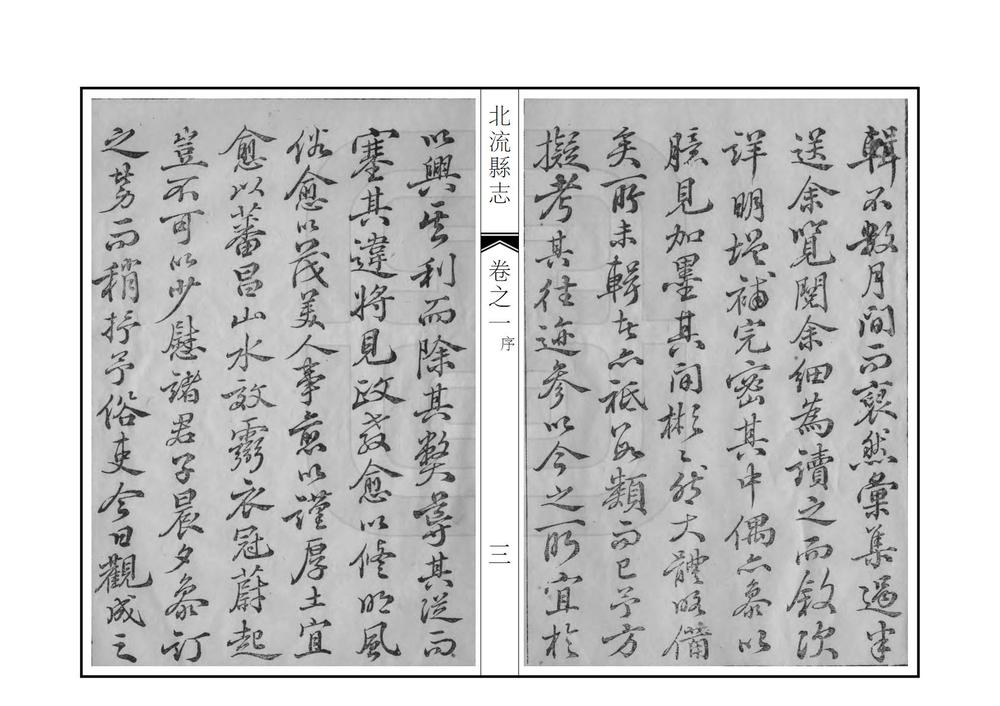 輯不數月間而裒然彙集過半
送余覽閱余細為讀之而敘次
詳明增補完密其中偶亦參以
臆見加墨其間彬彬然大體略備
矣所未輯者亦祗數類而已予方
擬考其往迹參以今之所宜於
北流縣志
卷之一 序
三
以興其利而除其弊導其從而
塞其違將見政教愈以修明風
俗愈以茂美人事愈以謹厚土宜
愈以蕃昌山水效靈衣冠蔚起
豈不可以少慰諸君子晨夕參訂
之勞而稍抒予俗吏今日觀成之